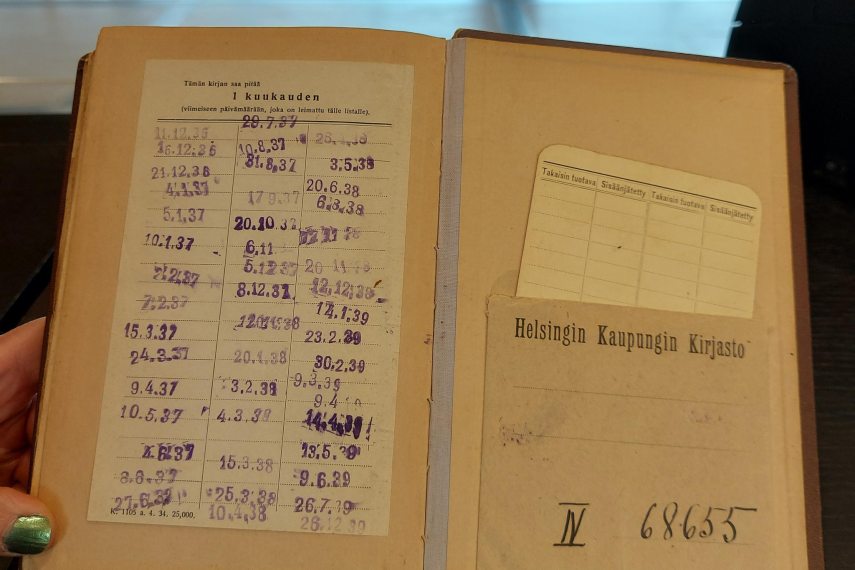 Tämän kirjan saa pitää
1 kuukauden
(viimeiseen päivämäärään, joka on leimattu tälle listalle).
11.12.36
16.12.36
21.12.36
4.1.37
5.1.37
10.1.37
7.2.37
15.3.37
24.3.37
9.4.37
10.5.37
27.6.37
K. 1105 a. 4. 34. 25,000.
29.7.37
10.8.37
31.8.37
17.9.37
20.10.37
6.11
5.12.37
8.12.37
20.1.38
3.2.38
4.3.38
15.3.38
25.3.38
10.4.38
3.5.38
20.6.38
6.8.38
12.12.38
14.1.39
23.2.39
30.2.39
9.3.39
9.4
14.4.39
13.5.39
9.6.39
26.7.39
26.12.39
Takaisin tuotava Sisäänjätetty Takaisin tuotava Sisäänjätetty
Helsingin Kaupungin Kirjasto
IV 68655